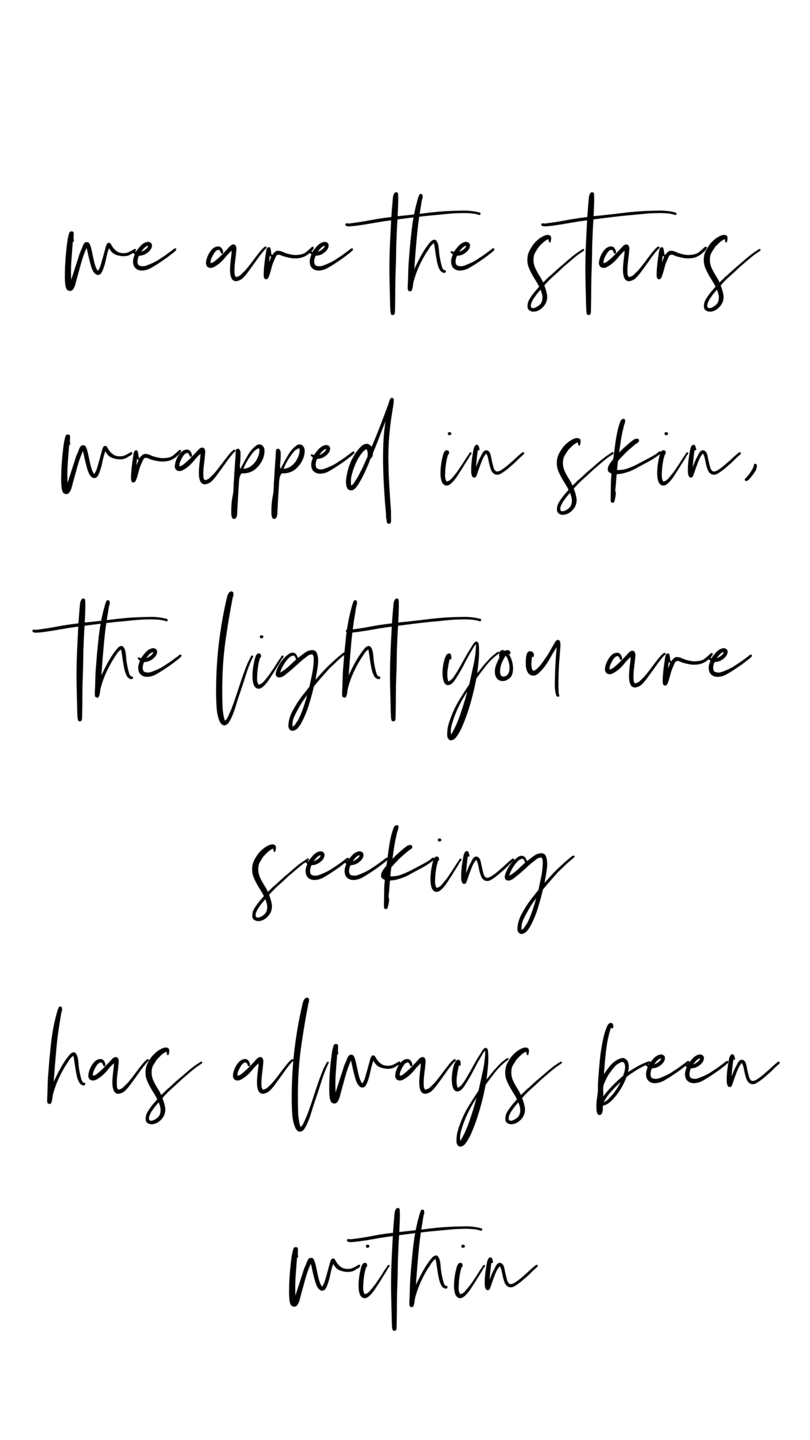 we are the stars
wrapped in skin,
the light you are
seeking
has always been
within